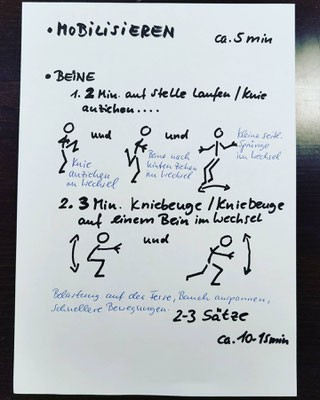 • MOBILISIEREN ca. 5 min
• BEINE
1. 2 Min. auf stelle laufen / Knie
anziehen....
und und
Knie
anziehen
im Wechsel
Beine nach
hinten ziehen
im Wechsel
kleine seitl.
Sprünge
im Wechsel
2. 3 Min. Kniebeuge / Kniebeuge
auf einem Bein im Wechsel
und
Belastung auf der Ferse, Bauch anspannen,
schnellere Bewegungen.
2-3 Sätze
ca. 10-15min